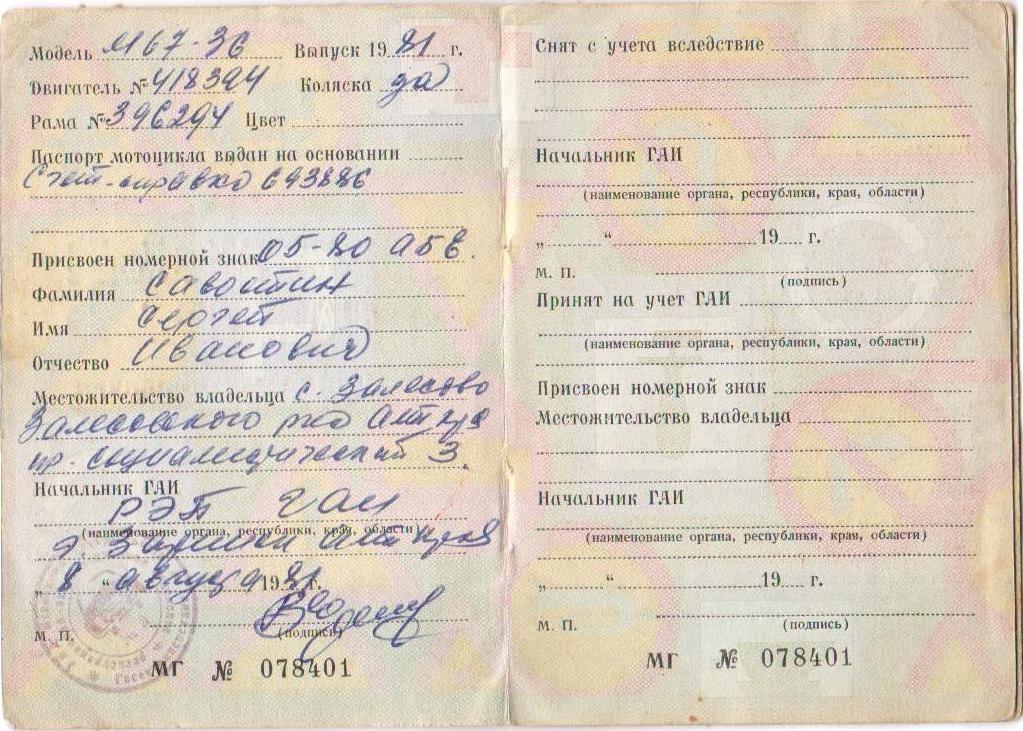 Модель М67-36 Выпуск 1981 г.
Двигатель № 418394 Коляска да
Рама № 396294 Цвет
Паспорт мотоцикла выдан на основании
Счет-справка 693886
Присвоен номерной знак 05-80 АБВ.
Фамилия
Имя Сергей
Отчество Иванович
Местожительство владельца с. Залесово
Залесовского р-на Алт. края
пр. социалистический 3.
Начальник ГАИ
РЭП ГАИ
(наименование органа, республики, края, области)
г. Алт. края
„ 8 “ августа 1981 г.
М. П. (подпись)
МГ № 078401
Снят с учета вследствие
Начальник ГАИ
(наименование органа, республики, края, области)
„ “ 19 г.
М. П. (подпись)
Принят на учет ГАИ
(наименование органа, республики, края, области)
Присвоен номерной знак
Местожительство владельца
Начальник ГАИ
(наименование органа, республики, края, области)
„ “ 19 г.
М. П. (подпись)
МГ № 078401